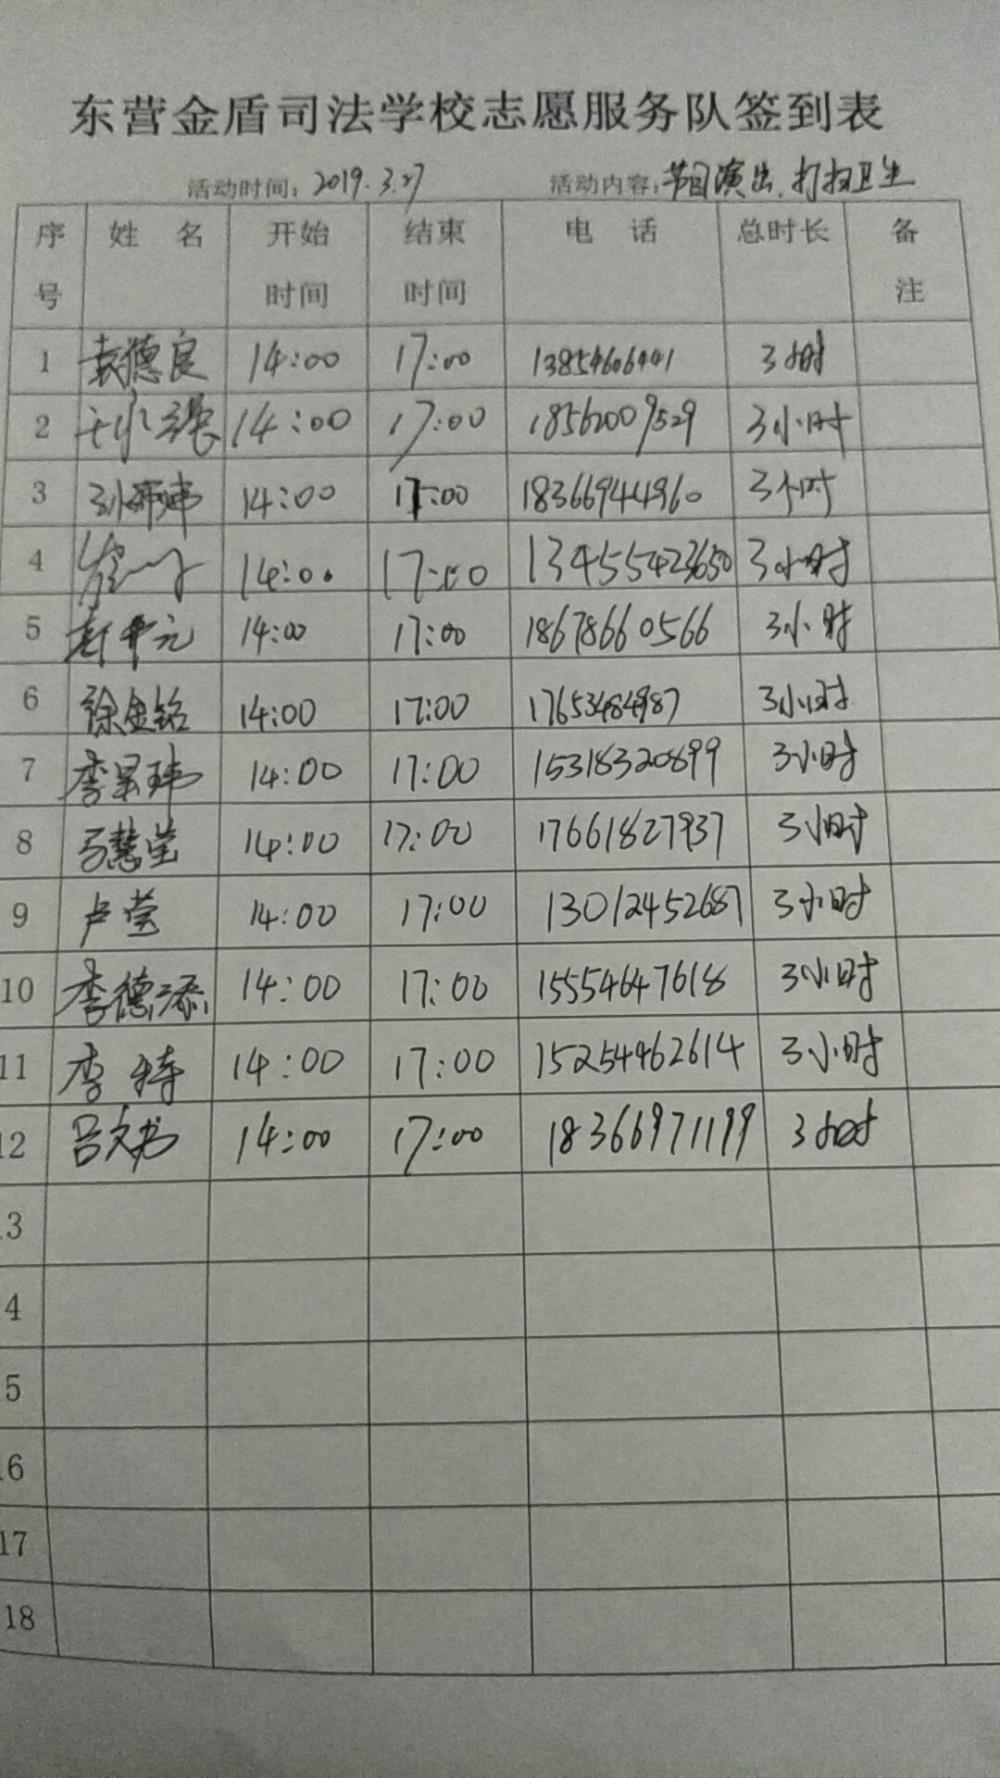 东营金盾司法学校志愿服务队签到表
活动时间：2019.3.27 活动内容：节目演出、打扫卫生
序号 姓名 开始时间 结束时间 电话 总时长 备注
1 袁德良 14:00 17:00 3小时
2 14:00 17:00 18562009529 3小时
3 14:00 17:00 18366944960 3小时
4 14:00 17:00 13455423650 3小时
5 14:00 17:00 18678660566 3小时
6 徐金铭 14:00 17:00 17653484987 3小时
7 李昊玮 14:00 17:00 15318320899 3小时
8 马慧莹 14:00 17:00 17661827937 3小时
9 卢莹 14:00 17:00 13012452687 3小时
10 李德添 14:00 17:00 15554647618 3小时
11 李特 14:00 17:00 15254462614 3小时
12 吕文书 14:00 17:00 18366971199 3小时
13
14
15
16
17
18